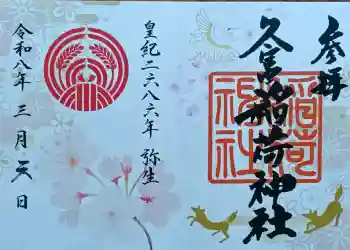 参拝
久富稲荷神社
稲荷神社
皇紀二六八六年 弥生
令和八年 三月 天日